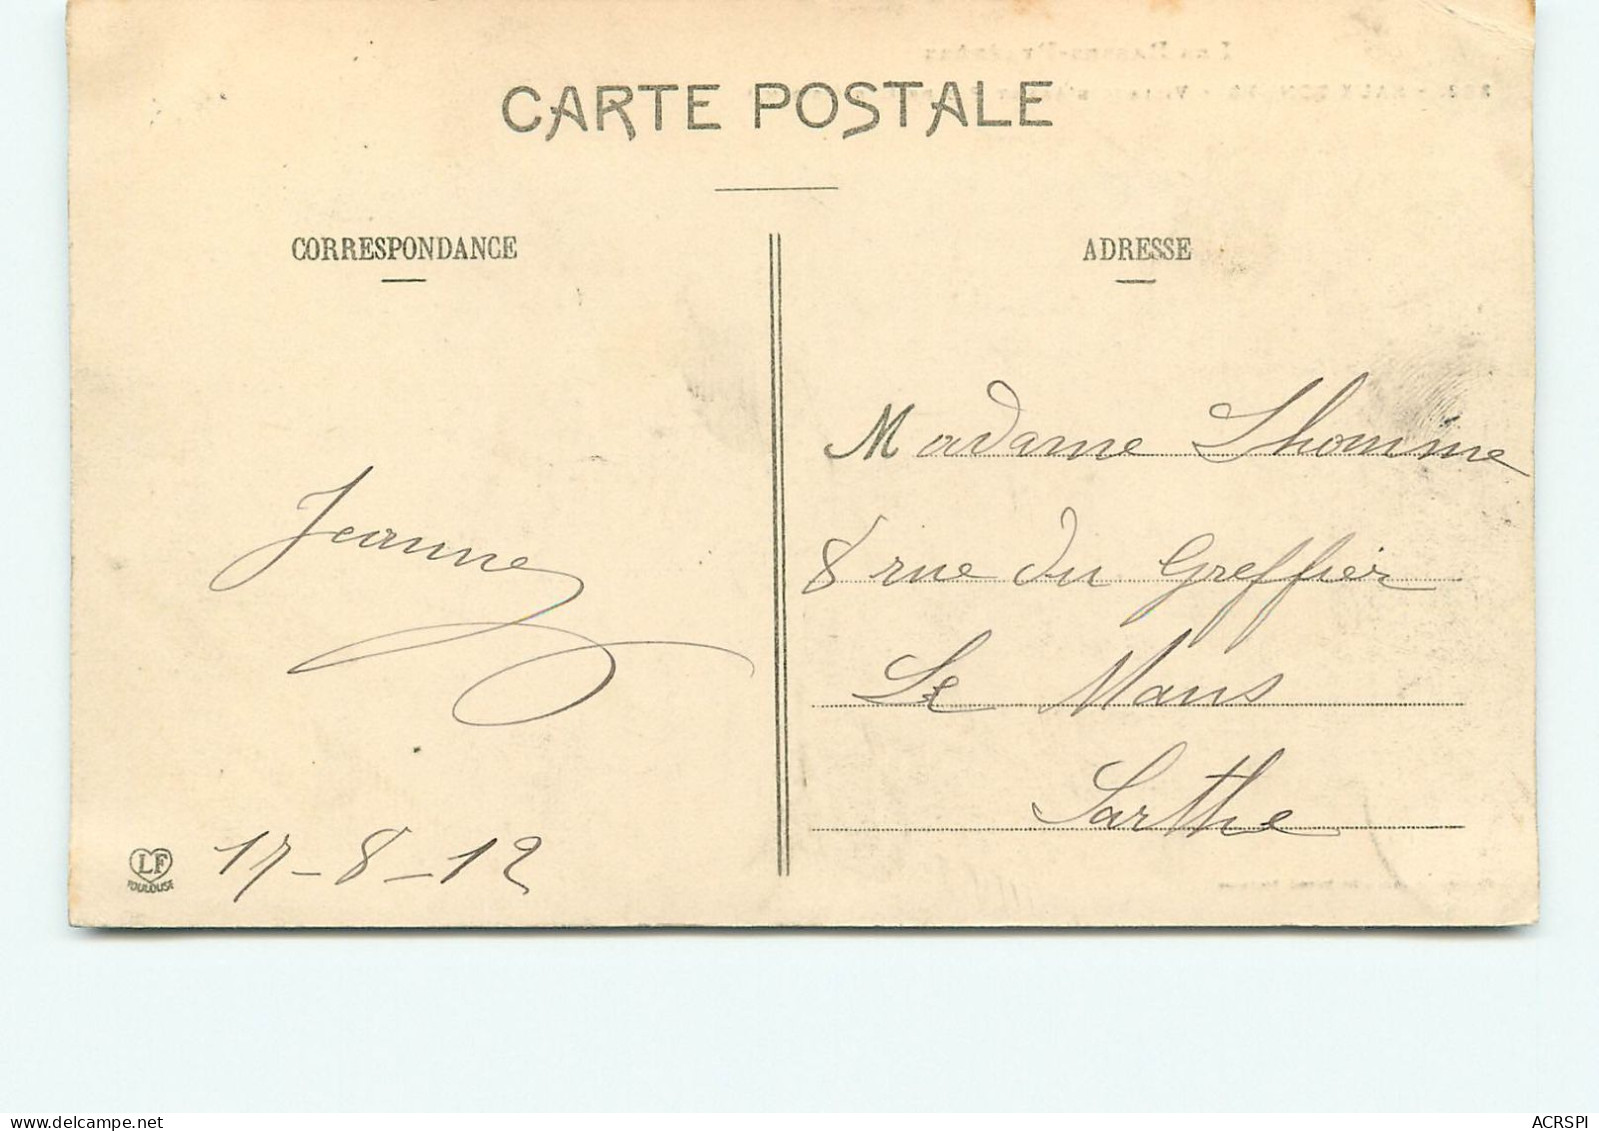 CARTE POSTALE
CORRESPONDANCE
ADRESSE
Madame Lhomme
8 rue du Greffier
Le Mans
Sarthe
Jeanne
17-8-12
LF
TOULOUSE
ACRSPI